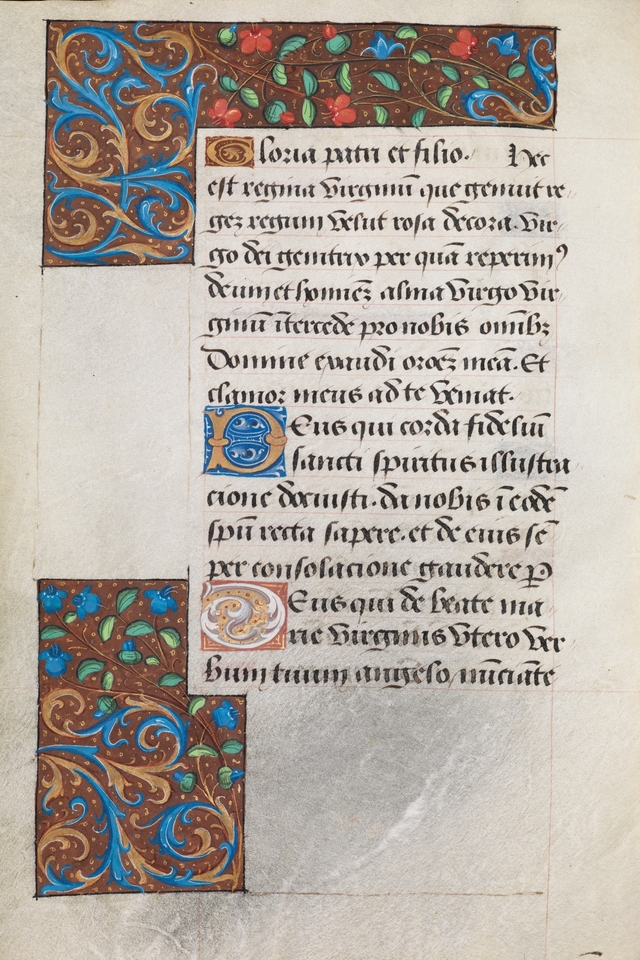 Gloria patri et filio. Hec
est regina virginũ que genuit re
gẽ regum velut rosa decora. vir
go dei genitrix per quã reperimꝰ
deum et hominẽ alma virgo vir
ginũ ĩtercede pro nobis omĩbꝫ
Domine exaudi oroẽz meã. Et
clamor meus ad te veniat.
Deus qui corda fideliũ
sancti spiritus illustra
cione docuisti. da nobis ĩ eodẽ
spũ recta sapere. et de eius sẽ
per consolacione gaudere ꝑ
Deus qui de beate ma
rie virginis vtero ver
bum tuum angelo nũciãte